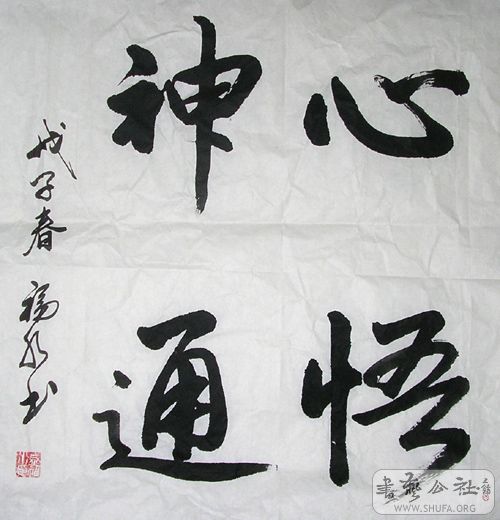 心悟
神通
戊子春 福永书
書藝公社
WWW.SHUFA.ORG